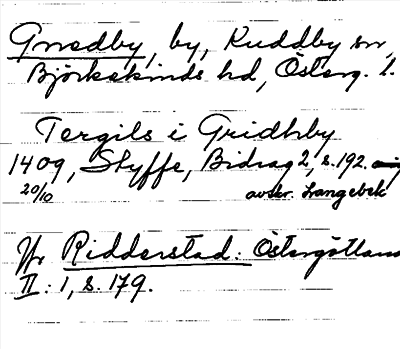 Gnedby, by, Kuddby sn,
Björkekinds hd, Österg. l.
Tergils i Gridhby
1409, Styffe, Bidrag 2, s. 192.
20/10 avskr. Langebek
Jfr Ridderstad: Östergötland
II: 1, s. 179.